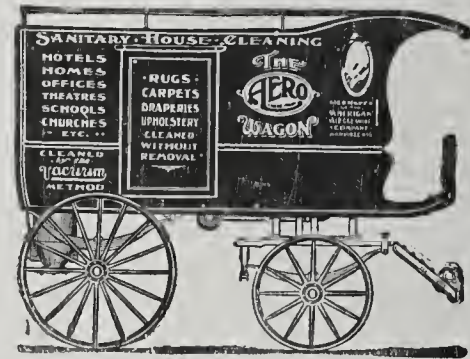 SANITARY · HOUSE · CLEANING
HOTELS
HOMES
OFFICES
THEATRES
SCHOOLS
CHURCHES
ETC.
CLEANED
by the
Vacuum
METHOD
· RUGS ·
CARPETS
DRAPERIES
UPHOLSTERY
CLEANED
WITHOUT
REMOVAL
THE
AERO
WAGON
AMERICAN
COMPANY